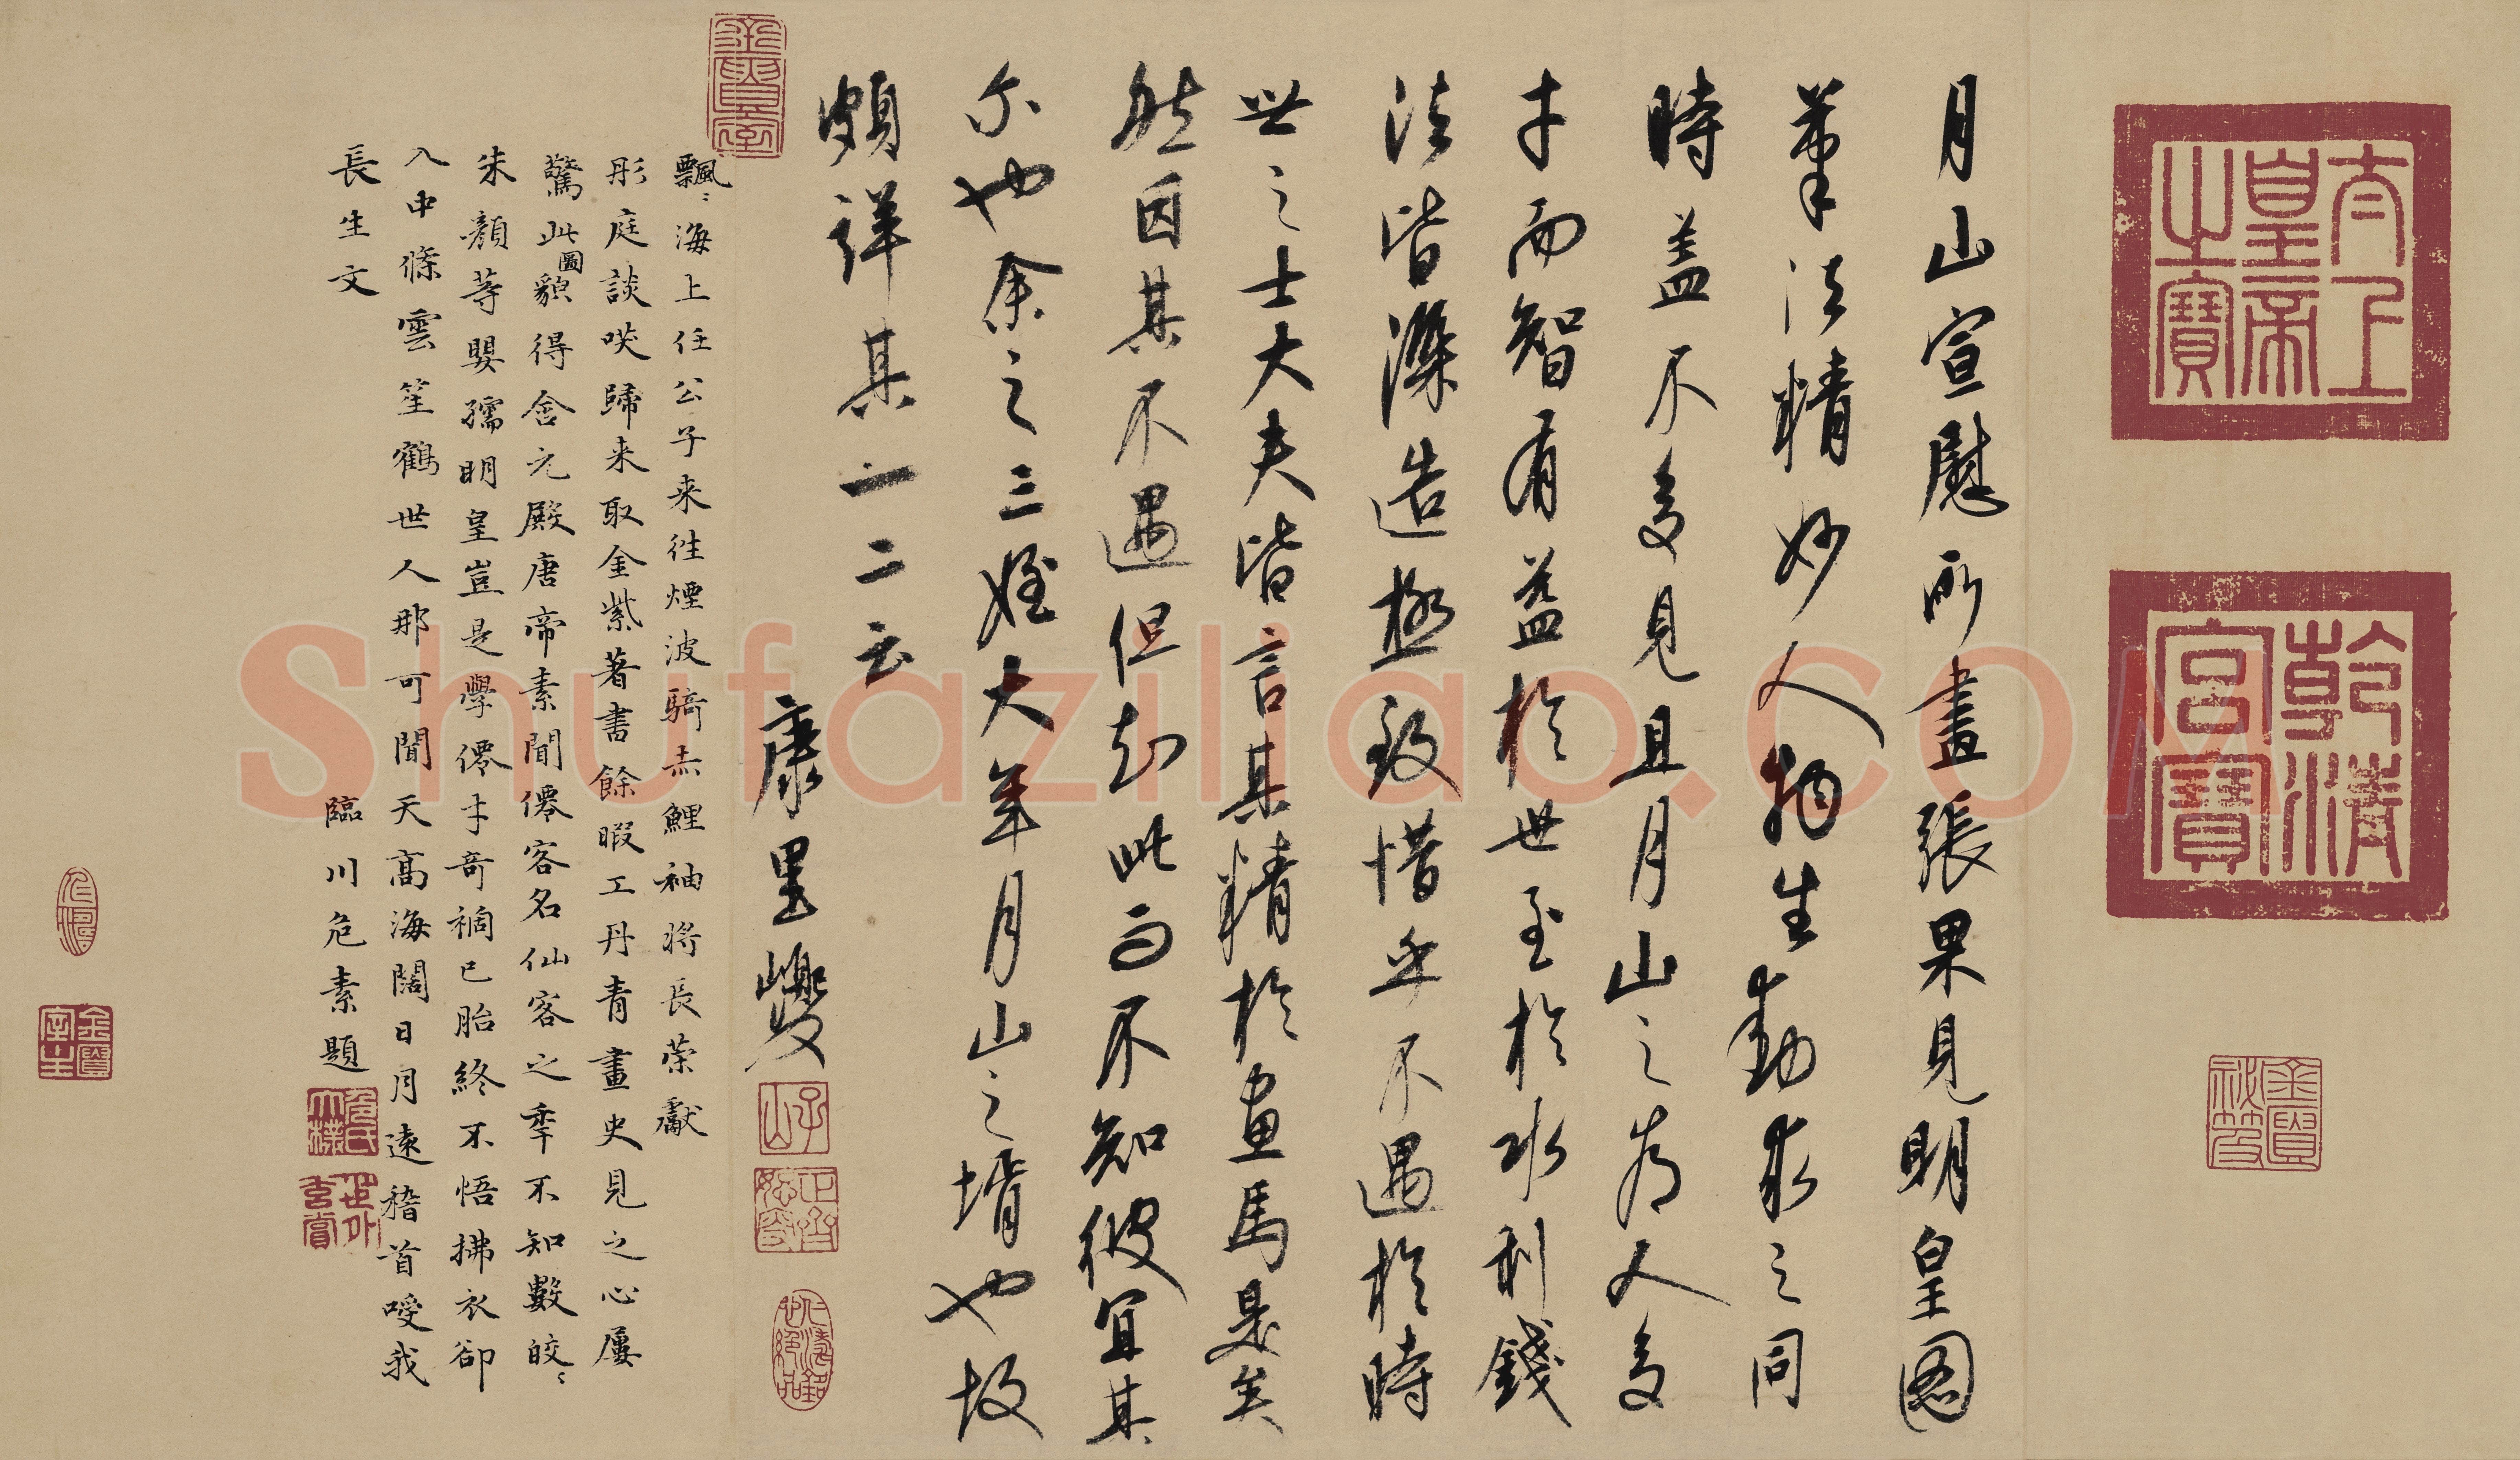 太上
皇帝
之寶
乾清
宮寶
月山宣慰所畫張果見明皇圖
筆法精妙人物生動求之同
時盖不多見且月山之為人多
才而智有益於世至於水利錢
法皆深造極致惜乎不遇於時
世之士大夫皆言其精於畫馬是矣
然因其不遇但知此而不知彼宜其
尔也余之三姪大年月山之壻也故
頗詳其一二云
康里巎
子山
飄〻海上任公子来往煙波騎赤鯉袖将長荣獻
彤庭談咲歸来取金紫著書餘暇工丹青畫史見之心屢
驚此圖貌得含元殿唐帝素聞僊客名仙客之季不知數皎〻
朱顏等嬰孺明皇豈是學僊才奇禍已胎終不悟拂衣卻
入中條雲笙鶴世人那可聞天高海闊日月遠稽首嘤我
長生文
臨川危素題
危氏
太樸
Shufaziliao.COM